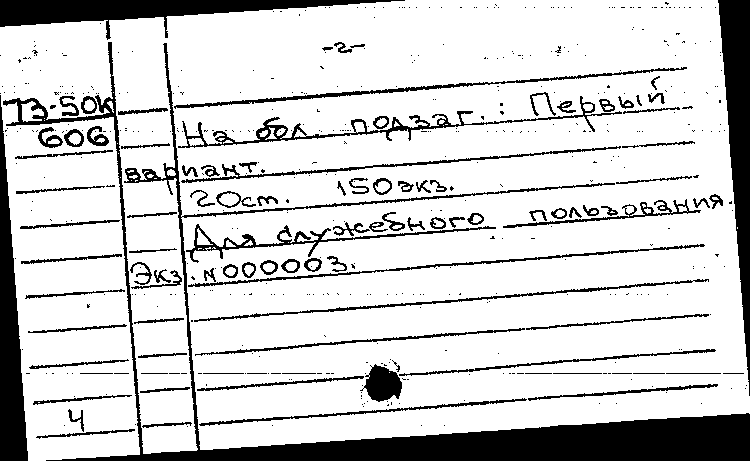 -2-
73-50к
606
На обл. подзаг.: Первый
вариант.
20см. 150экз.
Для служебного пользования.
Экз. N000003.
4